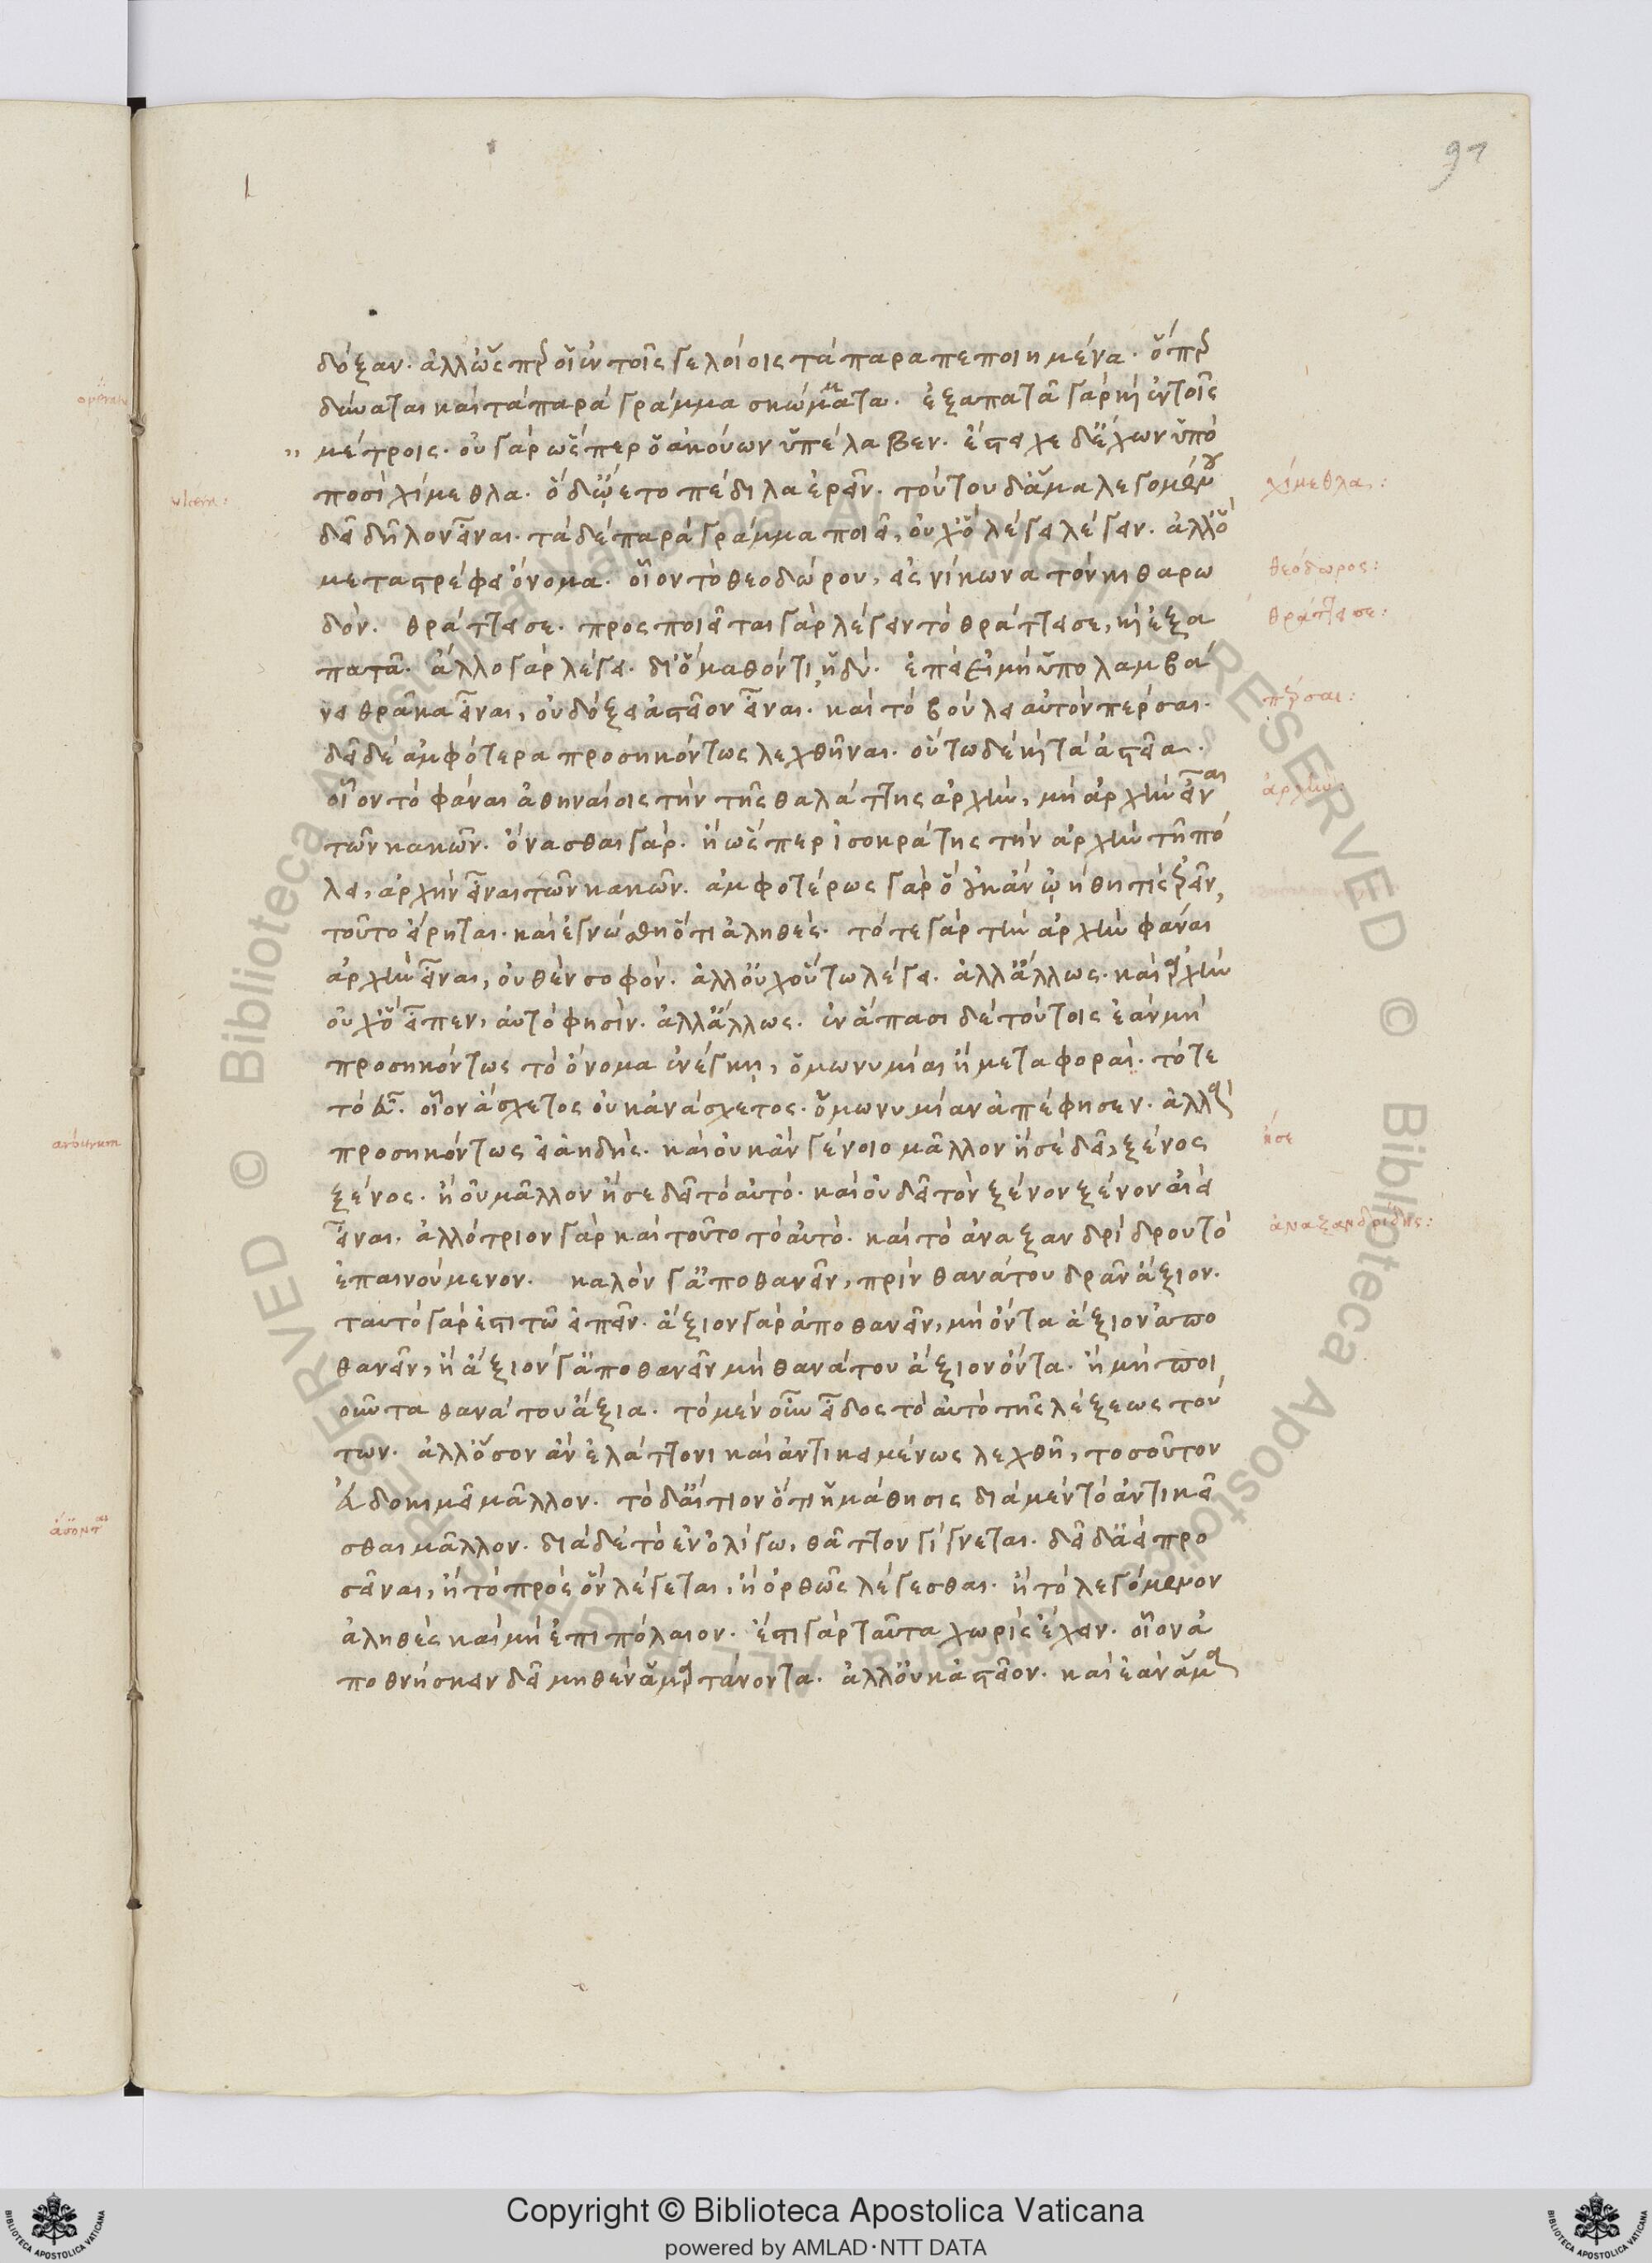 91
δόξαν. ἀλλ' ὥσπερ οἱ ἐν τοῖς γελοίοις τὰ παραπεποιημένα. ὅπερ
δύναται καὶ τὰ παρὰ γράμμα σκώμματα. ἐξαπατᾶ γὰρ καὶ ἐν τοῖς
μέτροις. οὐ γὰρ ὥσπερ ὁ ἀκούων ὑπέλαβεν. ἔστειχε δ' ἔχων ὑπὸ
ποσὶ χίμεθλα. ὁ δ' ᾤετο πέδιλα ἐρεῖν. τούτου δ' ἅμα λεγομένου
δεῖ δῆλον εἶναι. τὰ δὲ παρὰ γράμμα ποιεῖ, οὐχ ὃ λέγει λέγειν. ἀλλ' ὃ
μεταστρέφει ὄνομα. οἷον τὸ θεοδώρου, εἰς νίκωνα τὸν κιθαρω
δόν. θράττει σε. προσποιεῖται γὰρ λέγειν τὸ θράττει σε, καὶ ἐξα
πατᾶ. ἄλλο γὰρ λέγει. διὸ μαθόντι ἡδύ. ἐπεὶ εἰ μὴ ὑπολαμβά
νει θρᾶκα εἶναι, οὐ δόξει ἀστεῖον εἶναι. καὶ τὸ βούλει αὐτὸν πέρσαι.
δεῖ δὲ ἀμφότερα προσηκόντως λεχθῆναι. οὕτω δὲ καὶ τὰ ἀστεῖα.
οἷον τὸ φάναι ἀθηναίοις τὴν τῆς θαλάττης ἀρχὴν, μὴ ἀρχὴν εἶναι
τῶν κακῶν. ὄνασθαι γάρ. ἢ ὥσπερ ἰσοκράτης τὴν ἀρχὴν τῆ πό
λει, ἀρχὴν εἶναι τῶν κακῶν. ἀμφοτέρως γὰρ ὃ οὐκ ἂν ᾠήθη τὶς ἐρεῖν,
τοῦτο εἴρηται. καὶ ἐγνώσθη ὅτι ἀληθές. τό τε γὰρ τὴν ἀρχὴν φάναι
ἀρχὴν εἶναι, οὐθὲν σοφόν. ἀλλ' οὐχ οὕτω λέγει. ἀλλ' ἄλλως. καὶ ἀρχὴν
οὐχ ὃ εἶπεν, αὐτό φησιν. ἀλλ' ἄλλως. ἐν ἅπασι δὲ τούτοις ἐὰν μὴ
προσηκόντως τὸ ὄνομα ἐνέγκῃ, ὁμωνυμίαι ἢ μεταφοραί. τότε
τὸ εὖ. οἷον ἄσχετος οὐκ ἀνάσχετος. ὁμωνυμίαν ἀπέφησεν. ἀλλὰ
προσηκόντως εἰ ἀηδής. καὶ οὐκ ἂν γένοιο μᾶλλον ἢ σὲ δεῖ, ξένος
ξένος. ἢ οὐ μᾶλλον ἢ σε δεῖ τὸ αὐτό. καὶ οὐ δεῖ τὸν ξένον ξένον ἀιεὶ
εἶναι. ἀλλότριον γὰρ καὶ τοῦτο τὸ αὐτό. καὶ τὸ ἀναξανδρίδρου τὸ
ἐπαινούμενον. καλόν γ' ἀποθανεῖν, πρὶν θανάτου δρᾶν ἄξιον.
ταυτὸ γάρ ἐστι τῶ εἰπεῖν. ἄξιον γὰρ ἀποθανεῖν, μὴ ὄντα ἄξιον ἀπο
θανεῖν, ἢ ἄξιόν γ' ἀποθανεῖν μὴ θανάτου ἄξιον ὄντα. ἢ μὴ ποι
οῦντα θανάτου ἄξια. τὸ μὲν οὖν εἶδος τὸ αὐτὸ τῆς λέξεως τού
των. ἀλλ' ὅσον ἂν ἐλάττονι καὶ ἀντικειμένως λεχθῆ, τοσοῦτον
εὐδοκιμεῖ μᾶλλον. τὸ δ' αἴτιον ὅτι ἡ μάθησις διὰ μὲν τὸ ἀντικεῖ
σθαι μᾶλλον. διὰ δὲ τὸ ἐν ὀλίγω, θᾶττον γίγνεται. δεῖ δ' ἀεὶ προ
σεῖναι, ἢ τὸ πρὸς ὃν λέγεται, ἢ ὀρθῶς λέγεσθαι. ἢ τὸ λεγόμενον
ἀληθὲς καὶ μὴ ἐπιπόλαιον. ἔστι γὰρ ταῦτα χωρὶς ἔχειν. οἷον ἀ
ποθνήσκειν δεῖ μηθὲν ἁμαρτάνοντα. ἀλλ' οὐκ ἀστεῖον. καὶ ἐὰν ἅμα
χίμεθλα:
θεόδωρος:
θράττει σε:
πέρσαι:
ἀρχὴν:
ἤ σε
ἀναξανδρίδης:
© Biblioteca Apostolica Vaticana ALL RIGHTS RESERVED
Copyright © Biblioteca Apostolica Vaticana
powered by AMLAD·NTT DATA
BIBLIOTECA APOSTOLICA VATICANA
BIBLIOTECA APOSTOLICA VATICANA